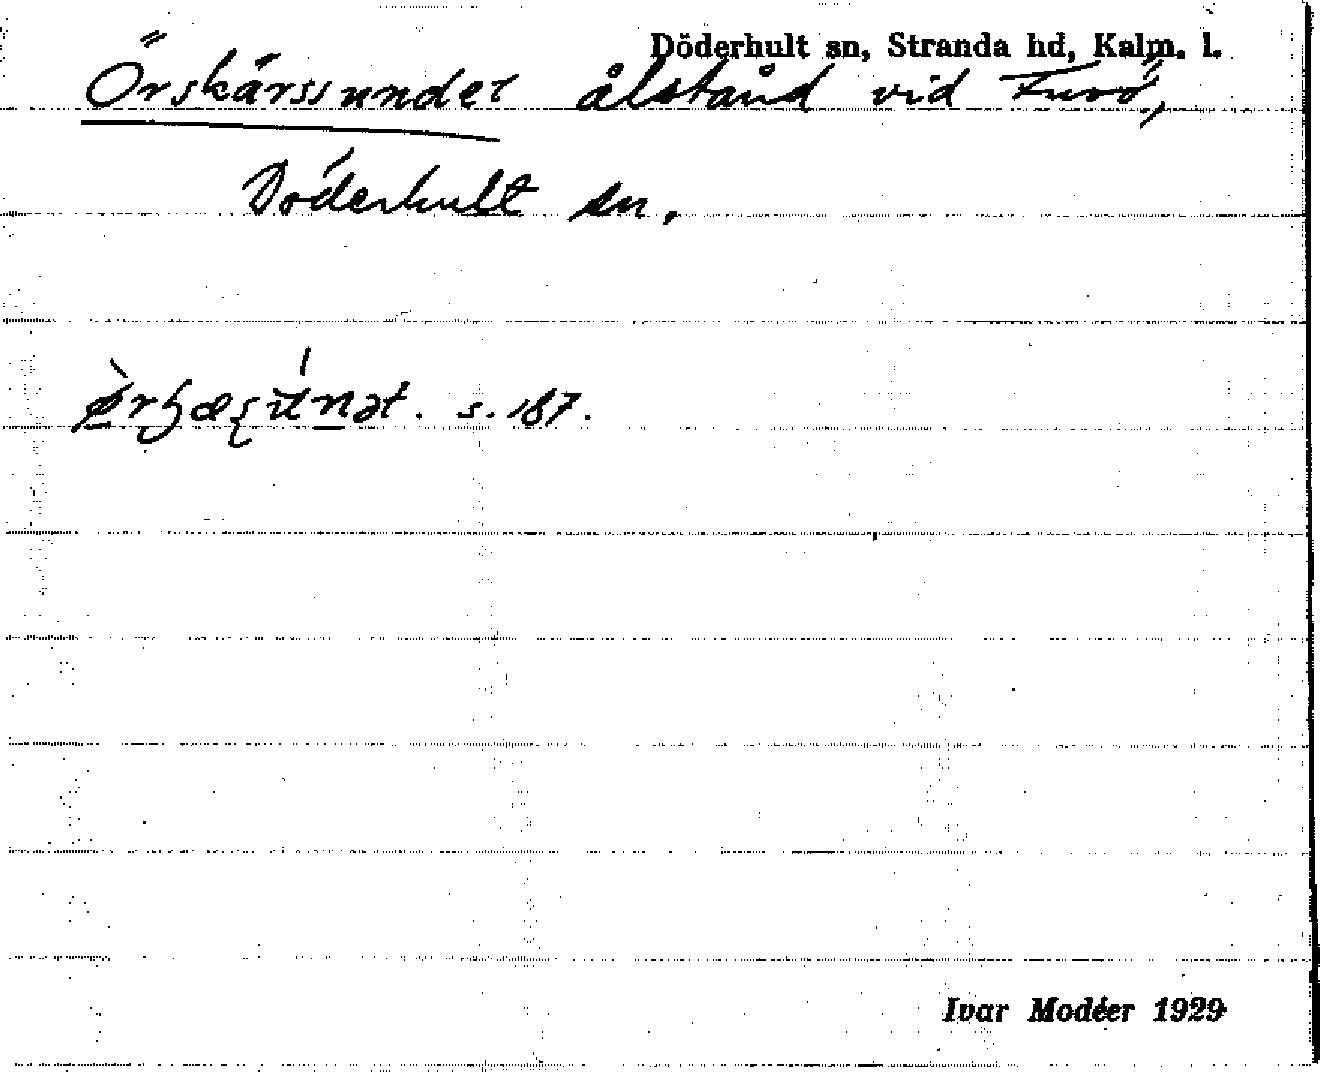 Döderhult sn, Stranda hd, Kalm. l.
Örskärssundet ålstånd vid Furö,
Döderhult sn.
s. 187.
Ivar Modéer 1929